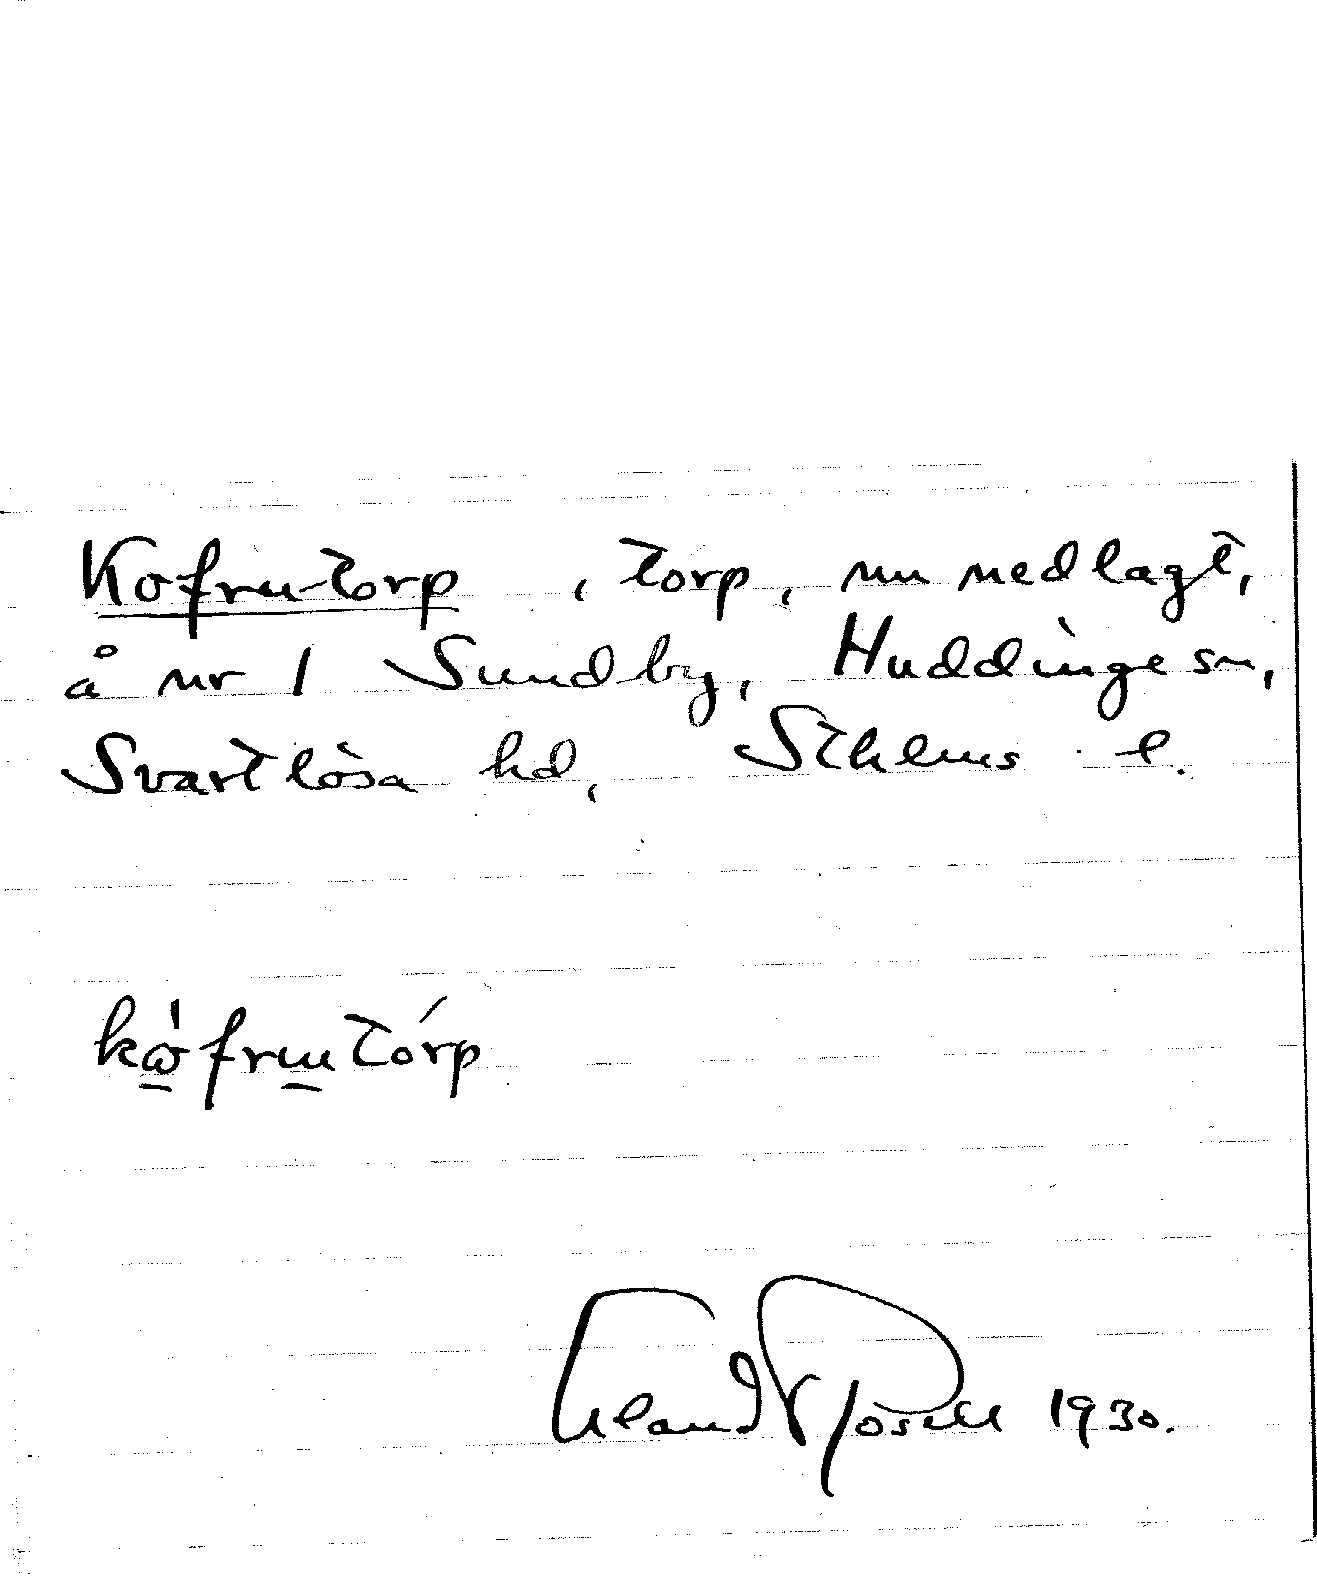 Kofrutorp, torp, nu nedlagt,
å nr 1 Sundby, Huddinge sn,
Svartlösa hd, Sthlms l.
kω̱̍fru̱tórp
Eland Rosell 1930.